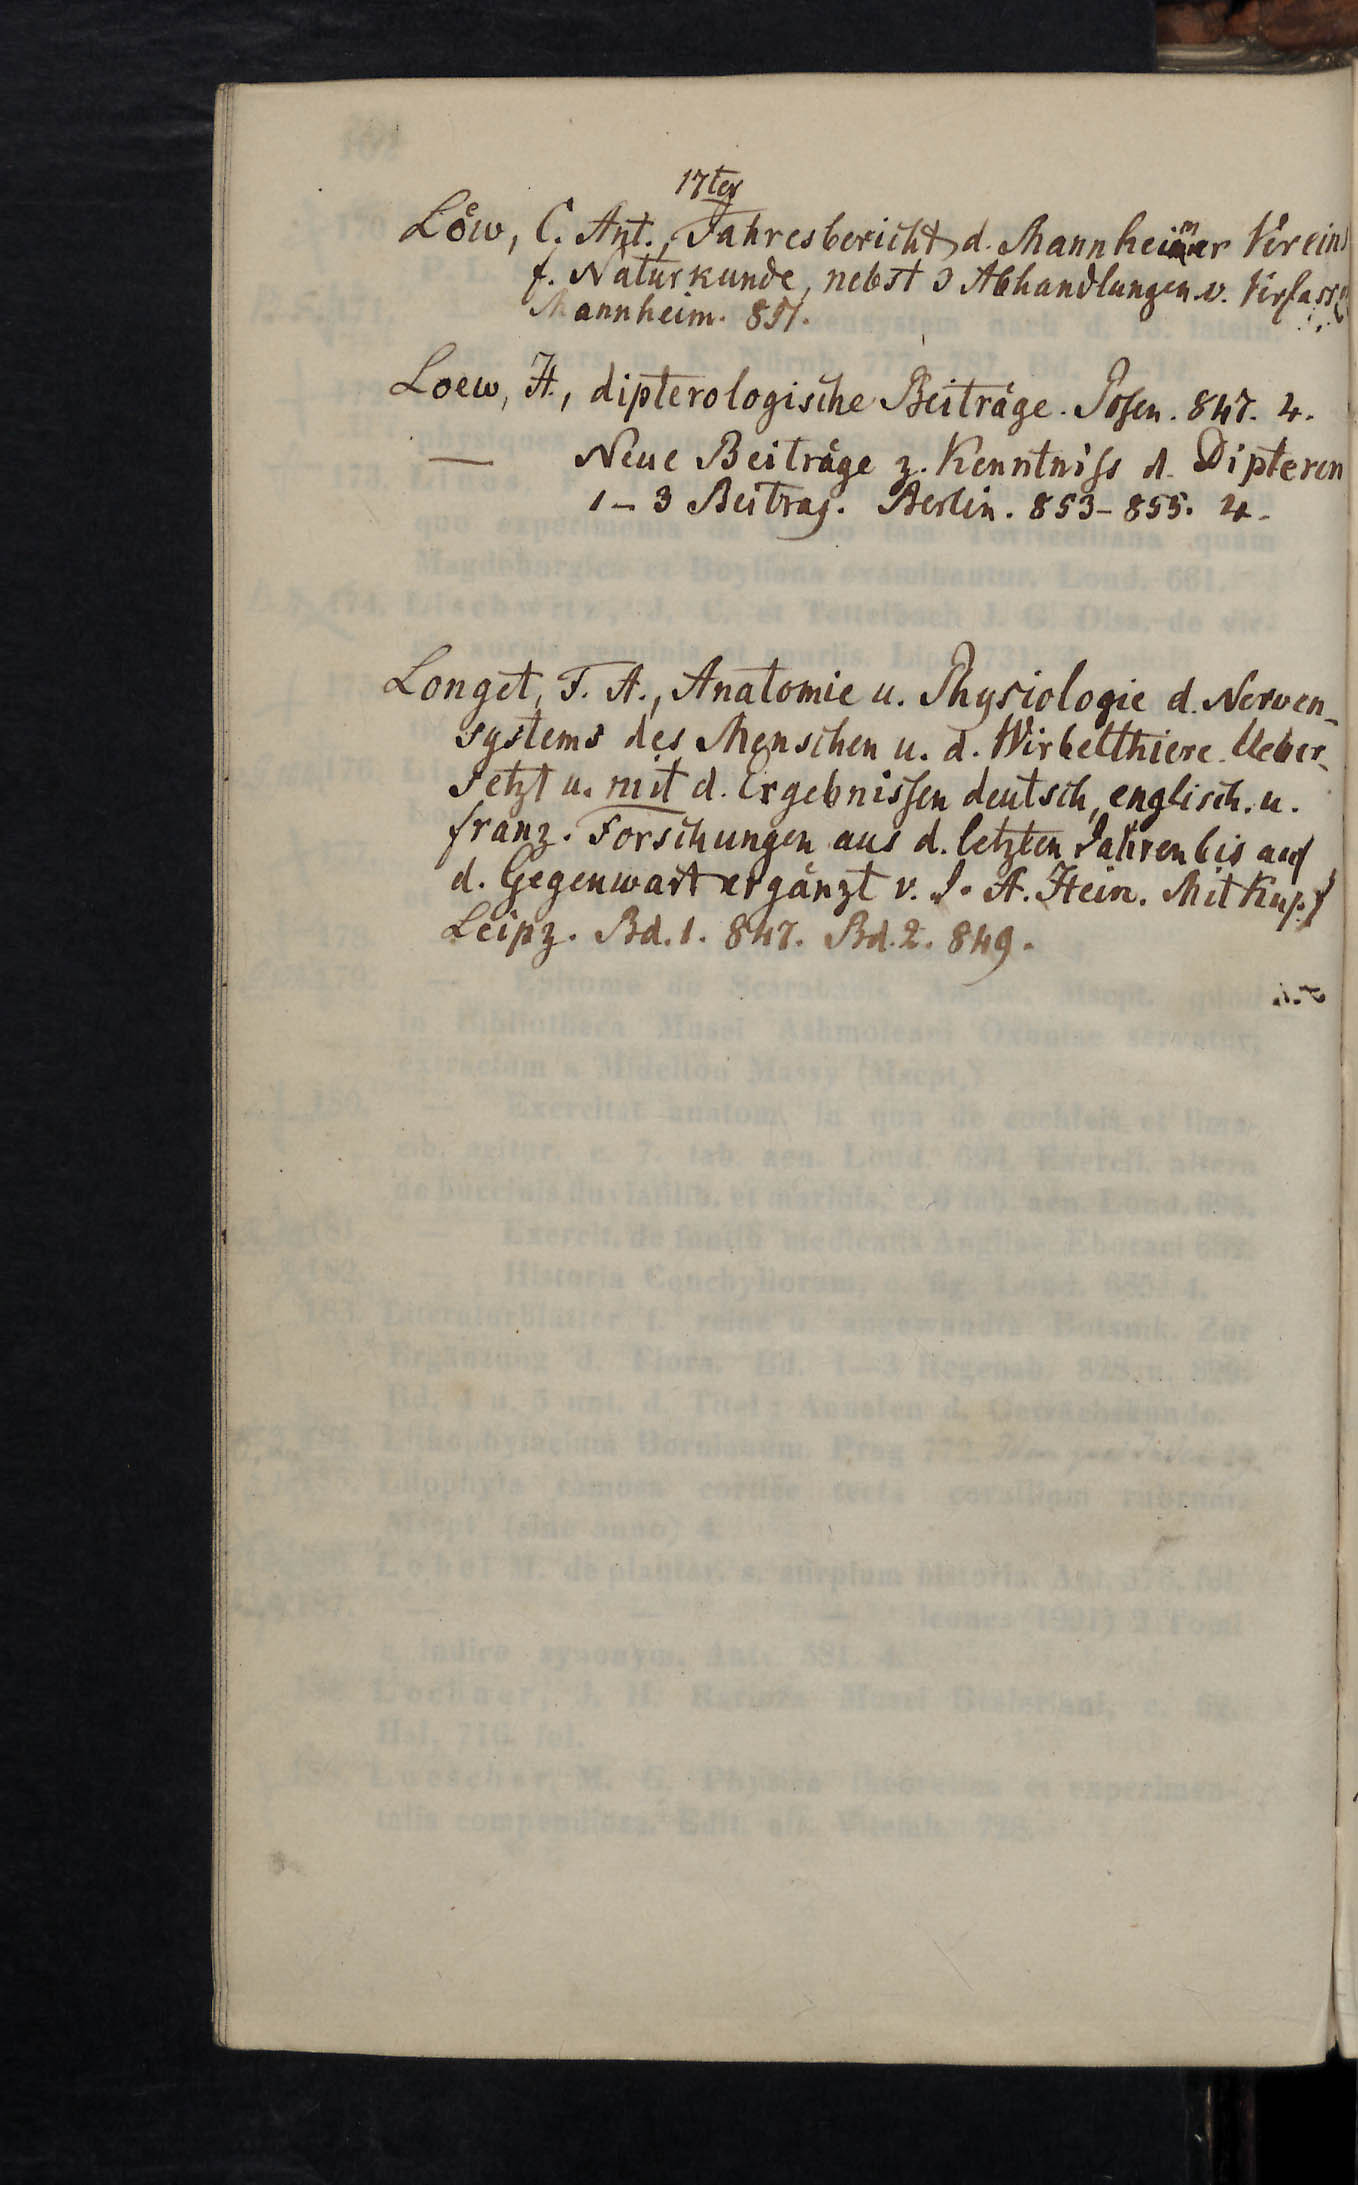 17ter
Löw, C. Ant., Jahresbericht d. Mannheimer Vereins
f. Naturkunde, nebst 3 Abhandlungen v. Verfasser
Mannheim. 851.
Loew, H., dipterologische Beiträge. Posen. 847. 4.
— Neue Beiträge z. Kenntniſs d. Dipteren
1–3 Beitrag. Berlin. 853–855. 4.
Longet, F. A., Anatomie u. Physiologie d. Nerven-
systems des Menschen u. d. Wirbelthiere. Ueber-
setzt u. mit d. Ergebniſsen deutsch, englisch. u.
franz. Forschungen aus d. letzten Jahren bis auf
d. Gegenwart ergänzt v. J. A. Hein. Mit Kupf
Leipz. Bd. 1. 847. Bd. 2. 849.